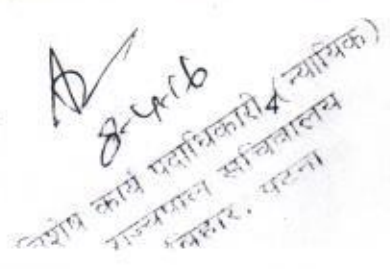 8-4-16
विशेष कार्य पदाधिकारी (न्यायिक)
राज्यपाल सचिवालय
बिहार, पटना